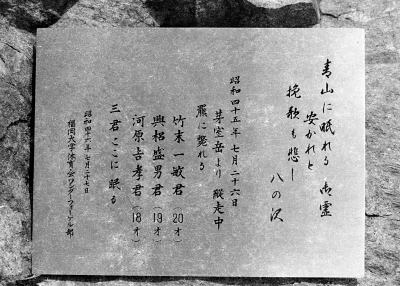 青山に眠れる 御霊
安かれと
挽歌も悲し
八の沢
昭和四十五年七月二十六日
芽室岳より縦走中
羆に斃れる
竹末一敏君(20才)
興梠盛男君(19才)
河原吉孝君(18才)
三君ここに眠る
昭和四十六年七月二十七日
福岡大学体育会ワンダーフォーゲル部